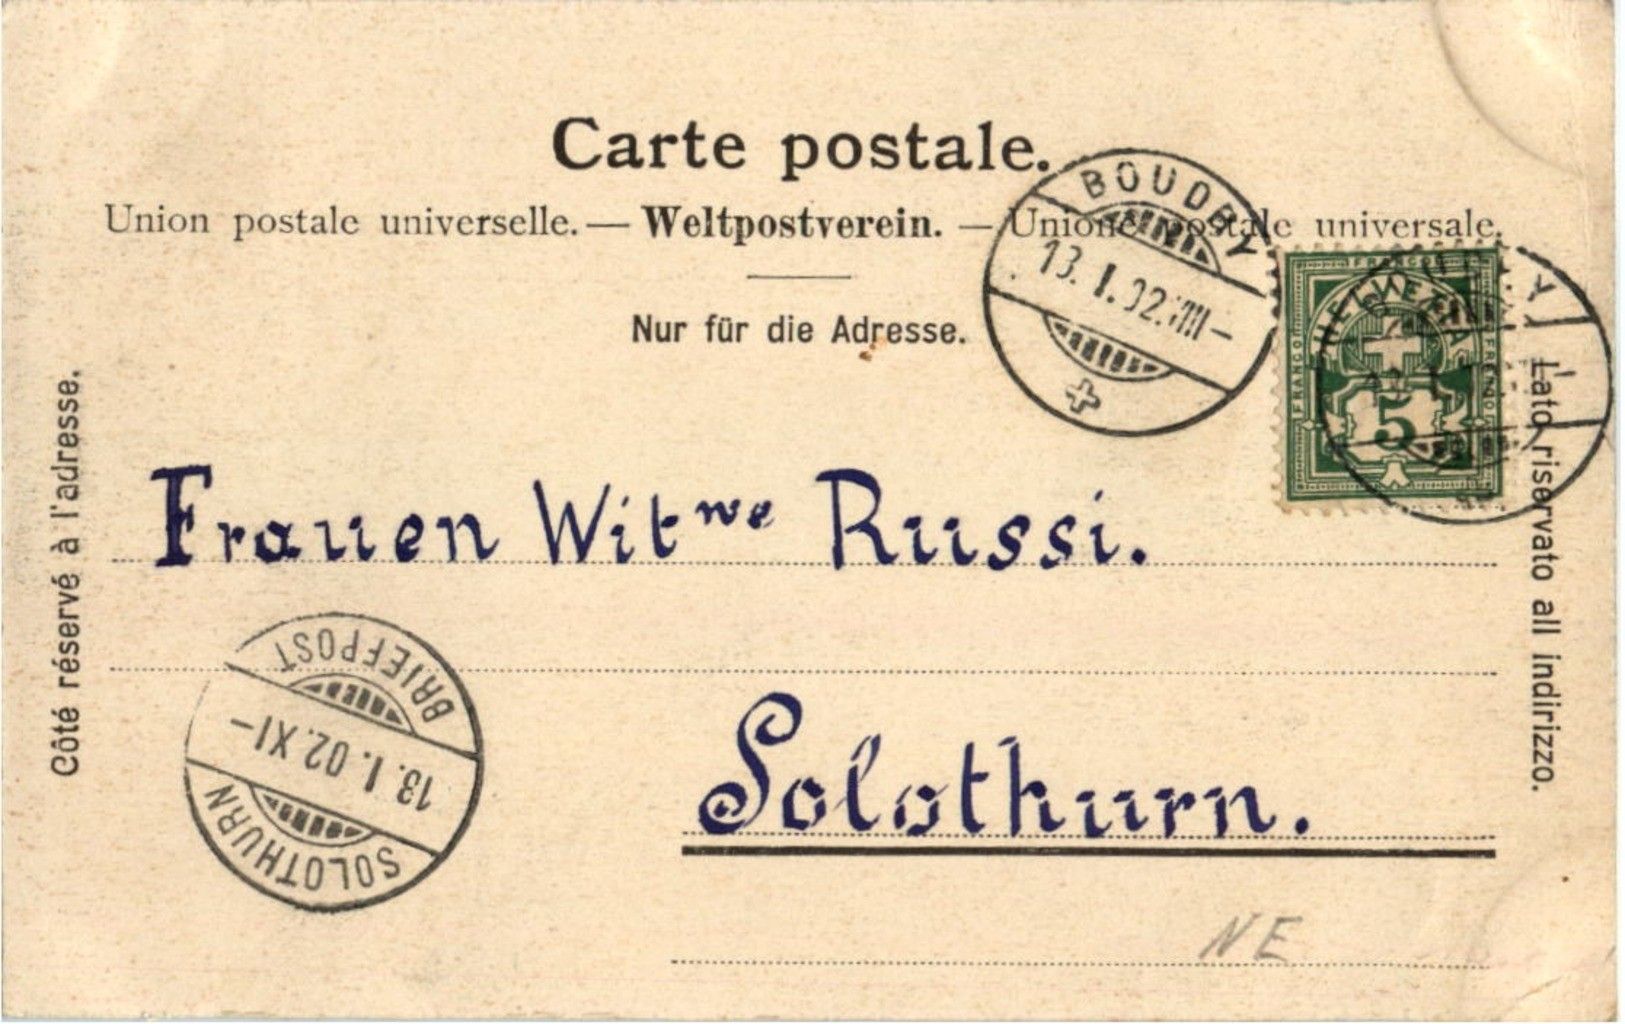 Carte postale.
Union postale universelle. — Weltpostverein. — Unione postale universale.
Nur für die Adresse.
Côté réservé à l'adresse.
Lato riservato all indirizzo.
BOUDRY
13. I. 02. VIII –
FRANCO
FRANCO
FRANCO
HELVETIA
5
Frauen Witwe Russi.
BRIEFPOST
13. I. 02. XI –
SOLOTHURN
Solothurn.
NE